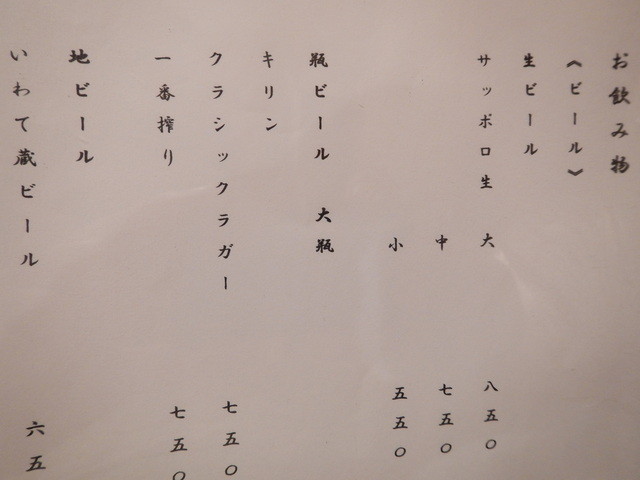 お飲み物
《ビール》
生ビール
サッポロ生 大 八五〇
中 七五〇
小 五五〇
瓶ビール 大瓶
キリン
クラシックラガー 七五〇
一番搾り 七五〇
地ビール
いわて蔵ビール 六五